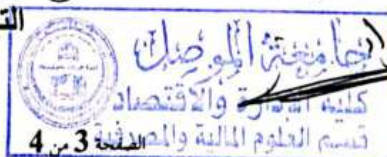 الت
جامعة الموصل
كلية الإدارة والاقتصاد
قسم العلوم المالية والمصرفية
الصفحة 3 من 4